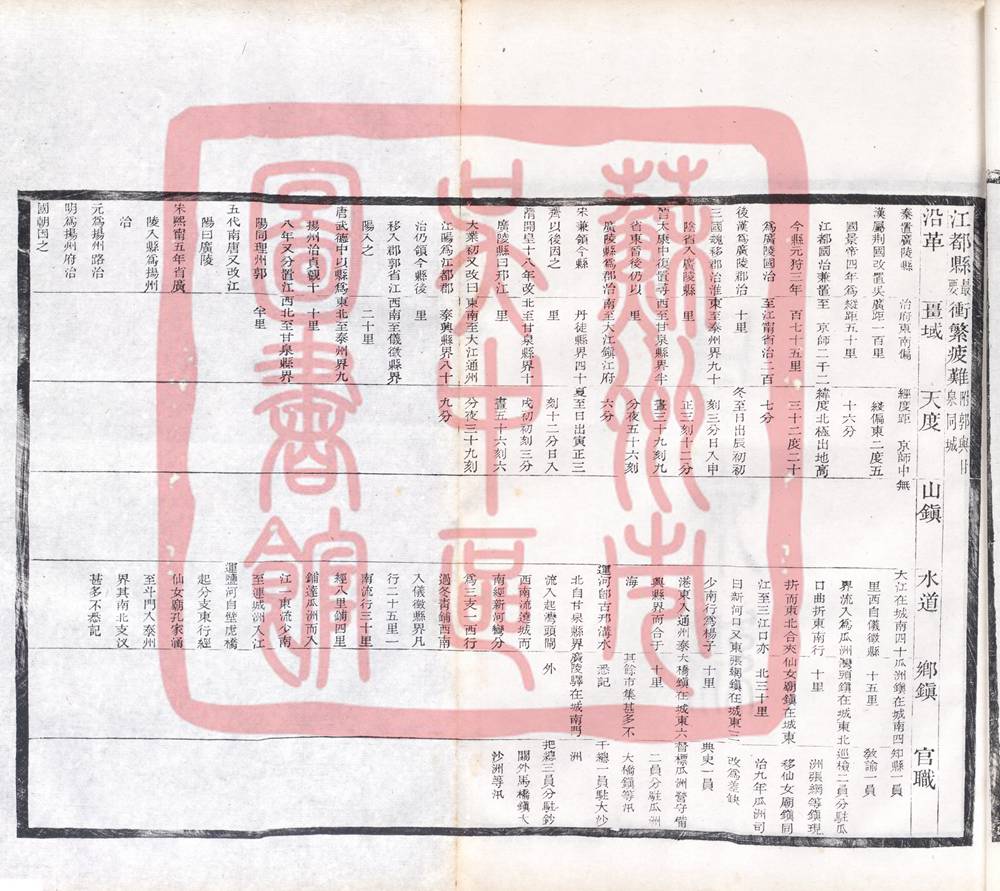 江都縣 最要 衝繁疲難 附郭與甘泉同城
沿革
秦置廣陵縣
漢屬荆國改置吳
國景帝四年爲
江都國治兼置
今縣元狩三年
爲廣陵國治
後漢爲廣陵郡治
三國魏移郡治淮
陰省入廣陵縣
晉太康中復置尋
省東晉後仍以
廣陵縣爲郡治
宋兼領今縣
齊以後因之
隋開皇十八年改
廣陵縣曰邗江
大業初又改曰
江陽爲江都郡
治仍領今縣後
移入郡郭省江
陽入之
唐武德中以縣爲
揚州治貞觀十
八年又分置江
陽同理州郭
五代南唐又改江
陽曰廣陵
宋熙甯五年省廣
陵入縣爲揚州
治
元爲揚州路治
明爲揚州府治
國朝因之
畺域
治府東南偏
廣距一百里
縱距五十里
至 京師二千二
百七十五里
至江甯省治二百
十里
東至泰州界九十
里
西至甘泉縣界半
里
南至大江鎮江府
丹徒縣界四十
里
北至甘泉縣界十
里
東南至大江通州
泰興縣界八十
里
西南至儀徵縣界
二十里
東北至泰州界九
十里
西北至甘泉縣界
半里
天度
經度距 京師中無
綫偏東二度五
十六分
緯度北極出地高
三十二度二十
七分
冬至日出辰初初
刻三分日入申
正三刻十二分
晝三十九刻九
分夜五十六刻
六分
夏至日出寅正三
刻十二分日入
戌初初刻三分
晝五十六刻六
分夜三十九刻
九分
山鎮
水道
大江在城南四十
里西自儀徵縣
界流入爲瓜洲
口曲折東南行
折而東北合夾
江至三江口亦
曰新河口又東
少南行爲楊子
港東入通州泰
興縣界而合于
海
運河卽古邗溝水
北自甘泉縣界
流入起灣頭閘
西南流遶城而
南經新河灣分
爲三支一西行
過冬青鋪西南
入儀徵縣界凡
行二十五里一
南流行三十里
經八里鋪四里
鋪達瓜洲而入
江一東流少南
至連城洲入江
運鹽河自壁虎橋
起分支東行經
仙女廟孔家涵
至斗門入泰州
界其南北支汊
甚多不悉記
鄉鎮
瓜洲鎮在城南四
十五里
灣頭鎮在城東北
十里
仙女廟鎮在城東
北三十里
張網鎮在城東三
十里
大橋鎮在城東六
十里
其餘市集甚多不
悉記
廣陵驛在城南門
外
官職
知縣一員
敎諭一員
巡檢二員分駐瓜
洲張網等鎮現
移仙女廟鎮同
治九年瓜洲司
改爲差缺
典史一員
督標瓜洲營守備
二員分駐瓜洲
大橋鎮等汛
千總一員駐大沙
洲
把總三員分駐鈔
關外馬橋鎮大
沙洲等汛
蘇州市
吳中區
圖書館